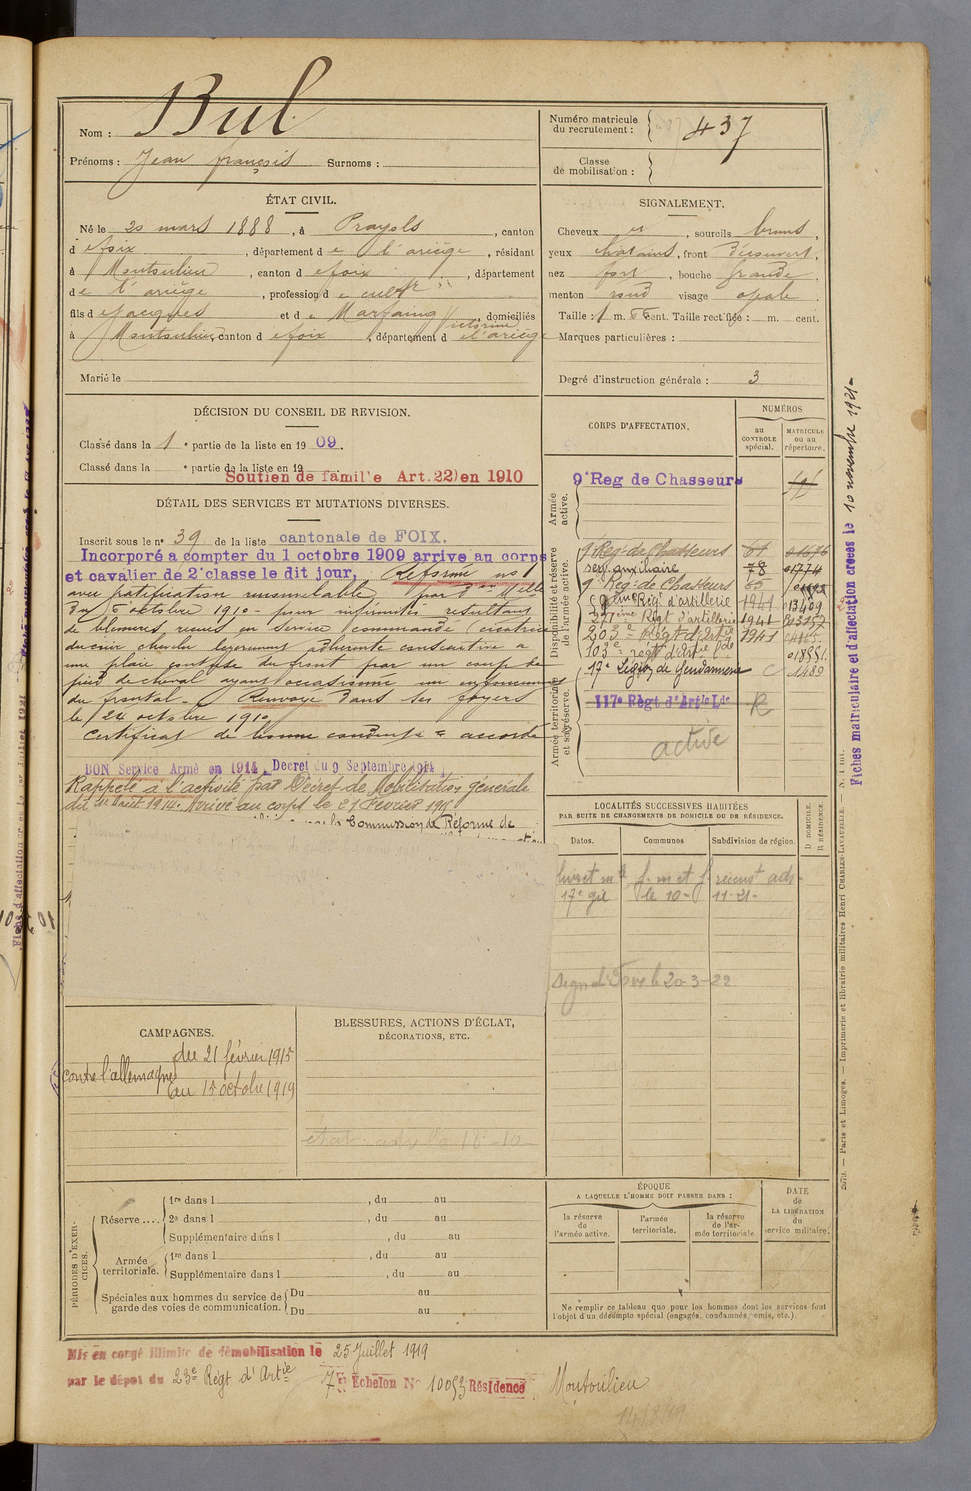 Nom : Bul
Prénoms : Jean françois Surnoms :
Numéro matricule du recrutement : 437
Classe de mobilisation :
ÉTAT CIVIL.
Né le 20 mars 1888, à Prayols, canton
de foix, département de l'ariège, résidant
à Montoulieu, canton de foix, département
de l'ariège, profession de cultr
fils de Jacques et de Marfaing Victorine, domiciliés
à Montoulieu, canton de foix, département de l'ariège
Marié le
SIGNALEMENT.
Cheveux et, sourcils bruns,
yeux chatains, front découvert,
nez fort, bouche grande,
menton rond visage ovale.
Taille : 1 m. cent. Taille rectifiée : m. cent.
Marques particulières :
Degré d'instruction générale : 3
DÉCISION DU CONSEIL DE REVISION.
Classé dans la 1e partie de la liste en 1909.
Classé dans la e partie de la liste en 19
Soutien de famille Art. 22) en 1910
DÉTAIL DES SERVICES ET MUTATIONS DIVERSES.
Inscrit sous le no 39 de la liste cantonale de FOIX.
Incorporé a compter du 1 octobre 1909 arrive au corps
et cavalier de 2e classe le dit jour, Réformé no 1
avec gratification renouvelable par
du 5 octobre 1910 - pour infirmités résultant
de blessures reçues en service commandé (cicatrice
du cuir chevelu legerement adherente consecutive a
une plaie contuse du front par un coup de
pied de cheval ayant occasionné un enfoncement
du frontal. Renvoyé dans ses foyers
le 24 octobre 1910
Certificat de bonne conduite accordé
BON Service Armé en 1914 Decret du 9 Septembre 1914
Rappelé à l'activité par Décret de Mobilisation générale
du 1er Août 1914. Arrivé au corps le 21 Février 1915
la Commission de Réforme de
CORPS D'AFFECTATION.
NUMÉROS
au CONTROLE spécial.
MATRICULE ou au répertoire.
Armée active.
9e Reg de Chasseurs
Disponibilité et réserve de l'armée active.
9e Regt de Chasseurs 61
serv. auxiliaire 78 01774
9e Regt de Chasseurs 65
Régt d'artillerie 1941 13409
Régt d'artillerie 1941
203e Régt d'Artie 1941
103e régt d'Artie Lde 01851
17e Légion de Gendarmerie C 1489
Armée territoriale et sa réserve.
117e Règt d'Artie Lde R
active
LOCALITÉS SUCCESSIVES HABITÉES
PAR SUITE DE CHANGEMENTS DE DOMICILE OU DE RÉSIDENCE.
Dates. Communes Subdivision de région.
D DOMICILE.
R RÉSIDENCE.
livret mle f. m et f recenst ads
17e gie le 10- 11-21-
le 20-3-22
CAMPAGNES.
contre l'allemagne
du 21 février 1915
au 15 octobre 1919
BLESSURES, ACTIONS D'ÉCLAT,
DÉCORATIONS, ETC.
PÉRIODES D'EXERCICES.
Réserve....
1re dans l , du au
2e dans l , du au
Supplémentaire dans l , du au
Armée territoriale.
1re dans l , du au
Supplémentaire dans l , du au
Spéciales aux hommes du service de garde des voies de communication.
Du au
Du au
ÉPOQUE
A LAQUELLE L'HOMME DOIT PASSER DANS :
la réserve de l'armée active.
l'armée territoriale.
la réserve de l'armée territoriale.
DATE de LA LIBÉRATION du service militaire.
Ne remplir ce tableau que pour les hommes dont les services font
l'objet d'un décompte spécial (engagés, condamnés, omis, etc.).
Mis en congé illimité de démobilisation le 25 Juillet 1919
par le dépot du 23e Règt d'Artie 7e Echelon No 10053 Résidence Montoulieu
Fiches matriculaire et d'affectation créées le 10 novembre 1921
2079. — Paris et Limoges. — Imprimerie et librairie militaires Henri CHARLES-LAVAUZELLE. — N. 1 int.